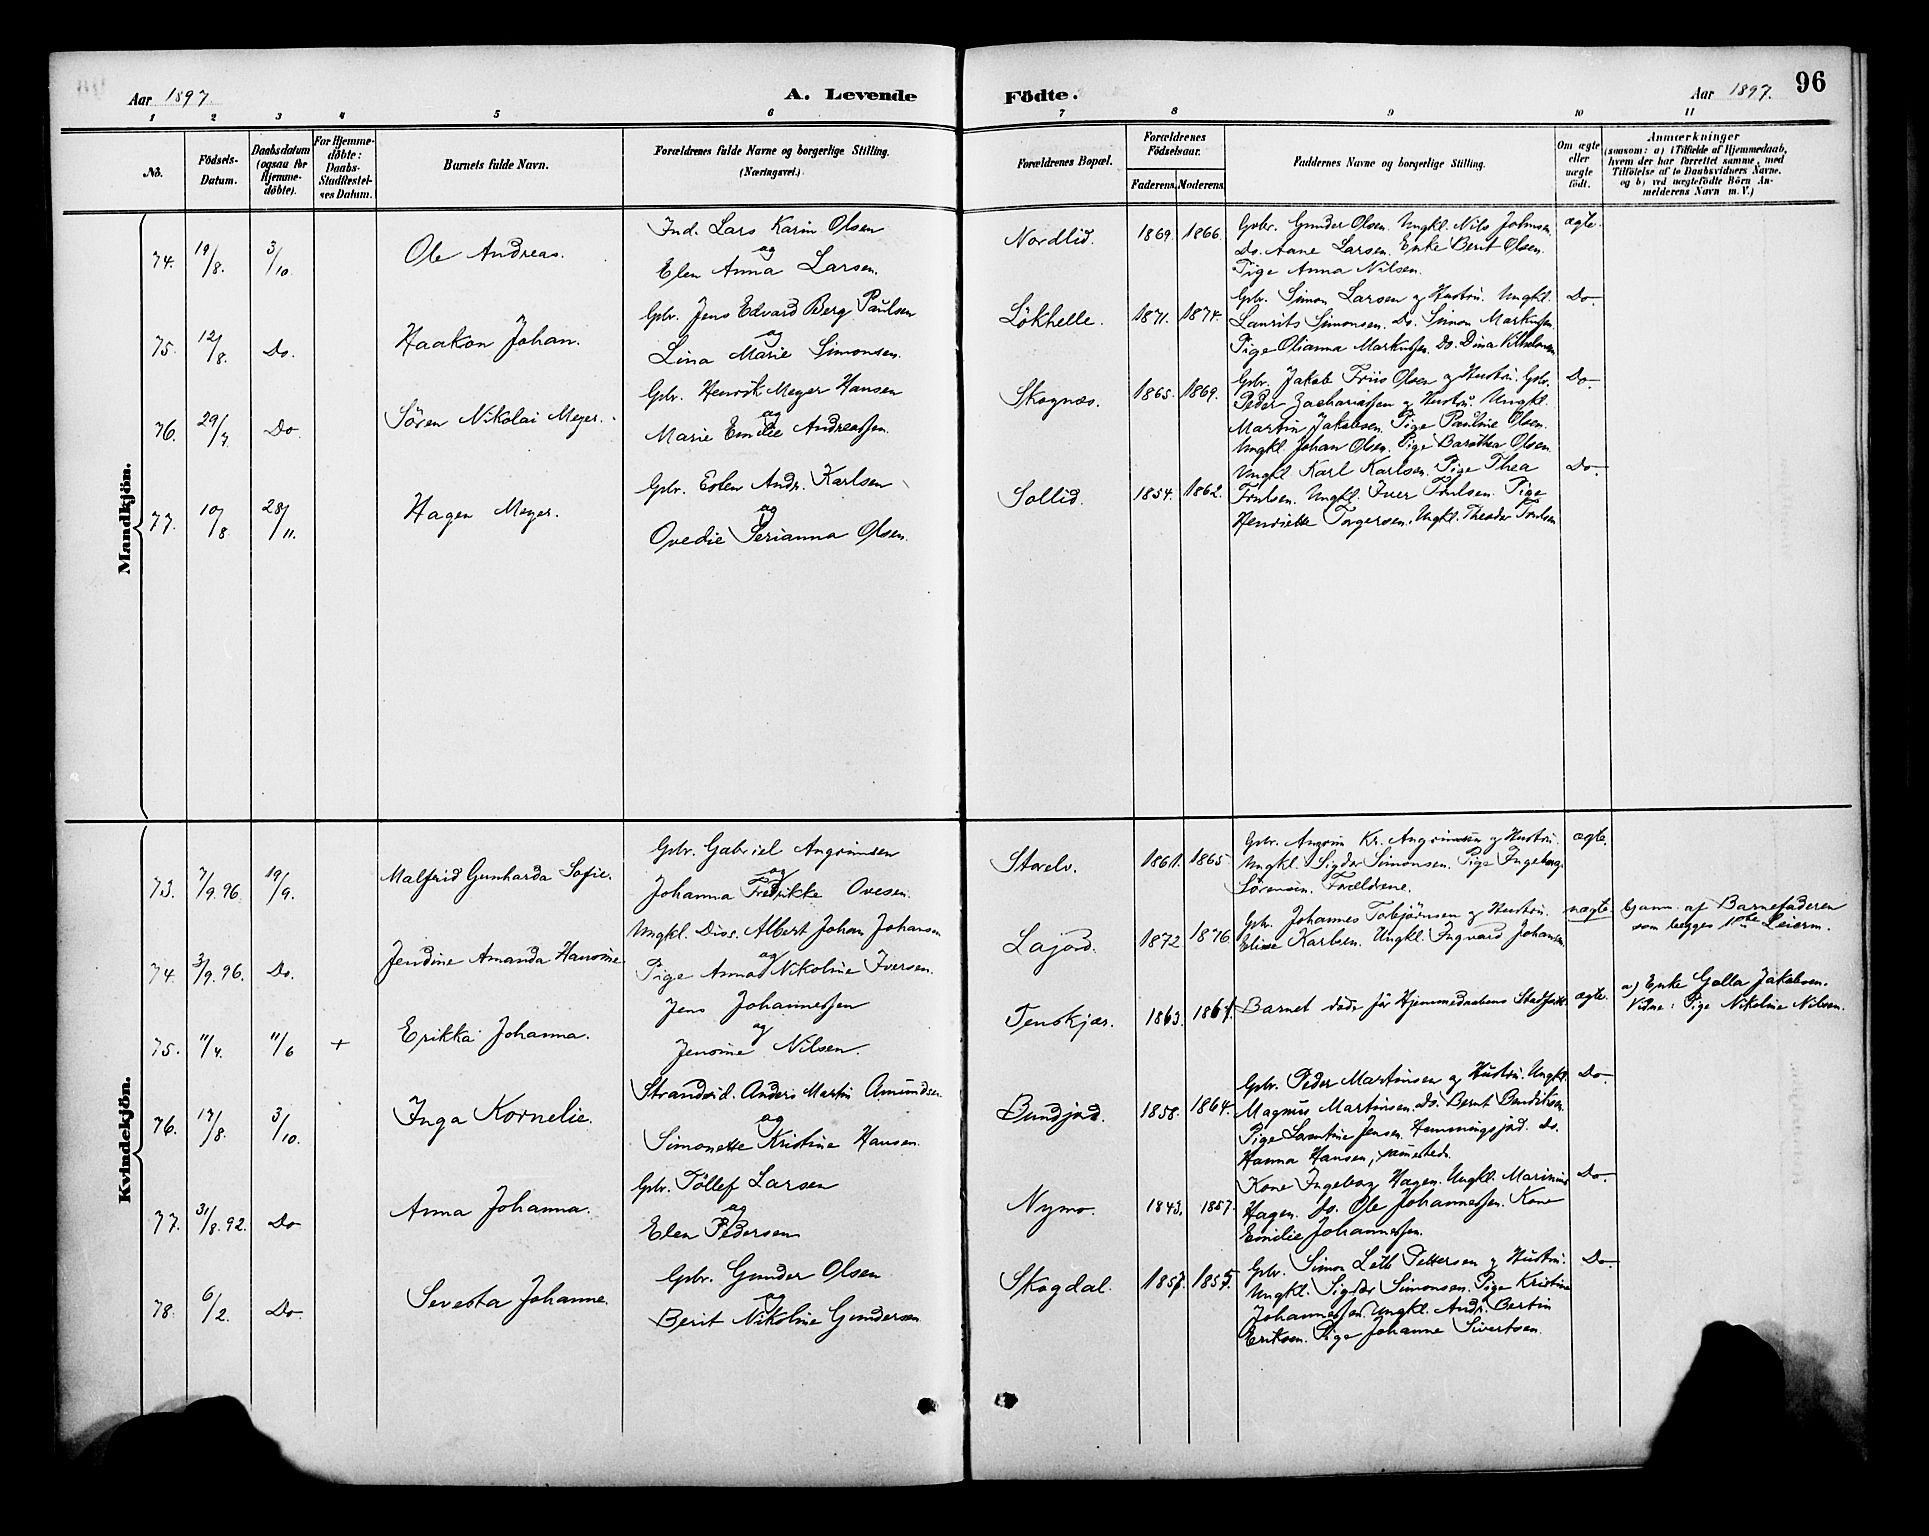 Aar 1897.
A. Levende
Födte.
Aar 1897.
96
1 2 3 4 5 6 7 8 9 10 11
No.
Födsels-
Datum.
Daabsdatum
(ogsaa for
Hjemme-
döbte).
For Hjemme-
döbte:
Daabs-
Stadfæstel-
ses Datum.
Barnets fulde Navn.
Forældrenes fulde Navne og borgerlige Stilling.
(Næringsvei.)
Forældrenes Bopæl.
Forældrenes
Födselsaar.
Faderens. Moderens.
Faddernes Navne og borgerlige Stilling.
Om ægte
eller
uægte
födt.
Anmærkninger
(saasom: a) i Tilfælde af Hjemmedaab,
hvem der har forrettet samme, med
Tilföielse af to Daabsvidners Navne,
og b) ved uægtefödte Börn An-
melderens Navn m. V.)
Mandkjön.
74. 19/8. 3/10. Ole Andreas.
Ind. Lars Karin Olsen
og
Elen Anna Larsen.
Nordlid. 1869. 1866.
Gbr. Gunder Olsen. Ungkl. Nils Johnsen.
Do. Aane Larsen. Enke Berit Olsen.
Pige Anna Nilsen.
ægte.
75. 12/8. Do. Haakon Johan.
Gbr. Jens Edvard Berg Paulsen
og
Lina Marie Simonsen.
Lökhelle. 1871. 1874.
Gbr. Simon Larsen og Hustru. Ungkl.
Laurits Simonsen. Do. Simon Markussen
Pige Olianna Markussen. Do. Dina Vilhelmsen
Do
76. 29/7 Do. Sören Nikolai Meyer.
Gbr. Henrik Meyer Hansen
og
Marie Emilie Andreassen
Skognæs. 1865. 1869.
Gbr. Jakob Friis Olsen og Hustru. Gbr.
Peder Zachariassen og Hustru. Ungkl.
Martin Jakobsen. Pige Pauline Olsen.
Ungkl. Johan Olsen. Pige Barothea Olsen
Do.
77. 10/8 28/11. Hagen Meyer.
Gbr. Eslen Andr. Karlsen
og
Ovedie Serianna Olsen.
Sollid. 1854. 1862.
Ungkl. Karl Karlsen. Pige Thea
Troulsen. Ungkl. Iver Troulsen. Pige
Henriette Torgersen. Ungkl. Theodor Troulsen
Do.
Kvindekjön.
73. 7/9.96. 19/9. Malfrid Gunharda Sofie.
Gbr. Gabriel Angrimsen
og
Johanna Fredrikke Ovesen.
Storelv. 1861. 1865
Gbr. Angrim Kr. Angrimsen og Hustru.
Ungkl. Sigder Simonsen. Pige Ingeborg
Sörensen. Forældrene.
ægte.
74. 3/9.96. Do. Jendine Amanda Hansine
Ungkl. Dios. Albert Johan Johansen
og
Pige Anna Nikoline Iversen.
Lajord. 1872 1876
Gbr. Johannes Tobjörnsen og Hustru.
Elisee Karlsen. Ungkl. Ingvard Johansen
uægte.
b) anm. af Barnefaderen
som begges 1ste Leierm.
75. 11/4. 11/6 + Erikka Johanna.
Jens Johannessen
og
Jensine Nilsen.
Tenskjær. 1863. 1864.
Barnet döde för Hjemmedaabens Stadfæst.
ægte.
a) Enke Golla Jakobsen.
Vidne: Pige Nikoline Nilsen.
76. 17/8. 3/10. Inga Kornelie.
Strandsid. Anders Martin Amundsen
og
Simonette Kristine Hansen.
Bundjord. 1858. 1864.
Gbr. Peder Martinsen og Hustru. Ungkl.
Magnus Martinsen. do. Bernt Bendiksen.
Pige Laurtine Jensen. Hemmingsjord. Do.
Hanna Hansen, samesteds.
Do.
77. 31/8.92. Do Anna Johanna.
Gbr. Töllef Larsen
og
Elen Pedersen
Nymo. 1843. 1857.
Kone Ingeborg Hagen. Ungkl. Marinius
Hagen. Do. Ole Johannessen. Kone
Emilie Johannessen.
Do.
78. 6/2. Do. Sevesta Johanne.
Gbr. Gunder Olsen
og
Berit Nikoline Gundersen
Skogdal. 1857. 1855.
Gbr. Simon Leth Pettersen og Hustru.
Ungkl. Sigder Simonsen. Pige Kristine
Johannessen. Ungkl. Andr. Bertin
Eriksen. Pige Johanne Sivertsen.
Do.